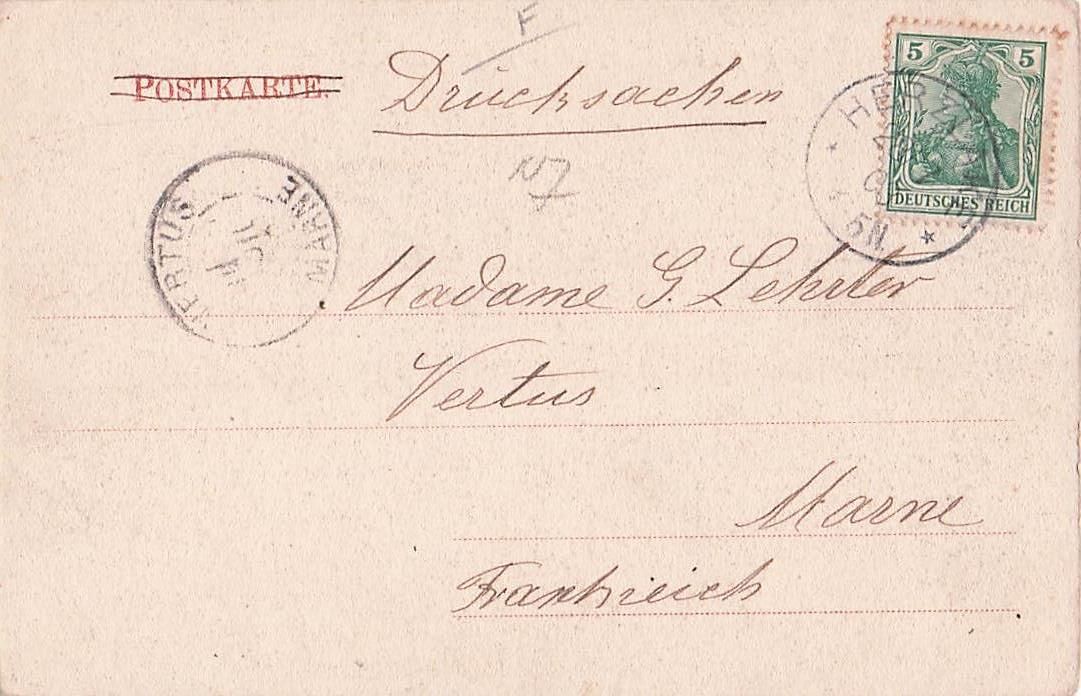 F
POSTKARTE.
Drucksachen
5 5
DEUTSCHES REICH
N7
VERTUS
MARNE
Madame G. Lehrter
Vertus
Marne
Frankreich